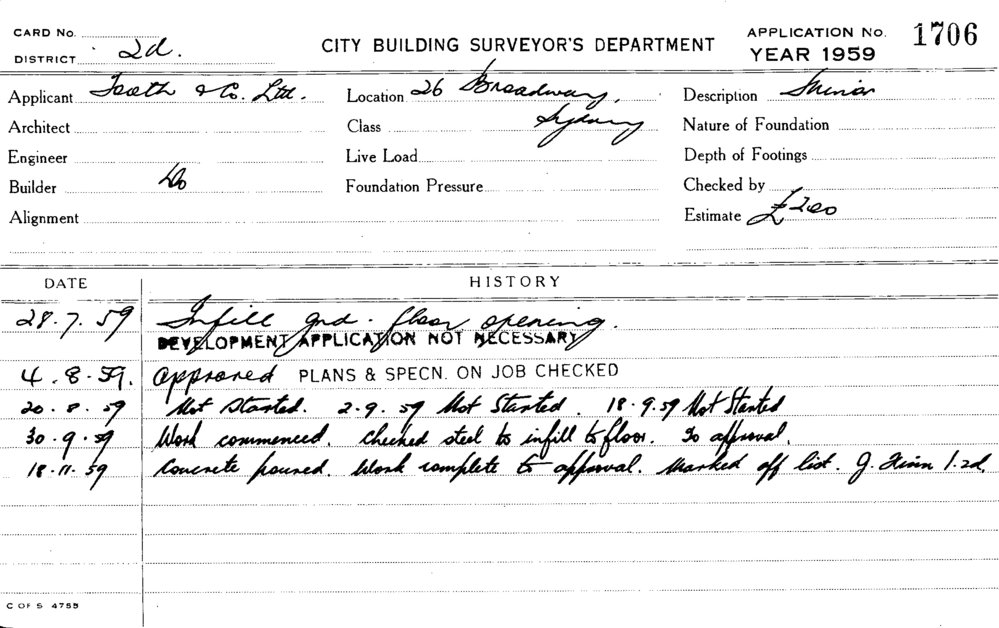 CARD No.
DISTRICT 2d.
CITY BUILDING SURVEYOR'S DEPARTMENT
APPLICATION No. 1706
YEAR 1959
Applicant Tooth & Co. Ltd. Location 26 Broadway, Description Minor
Architect Class Sydney Nature of Foundation
Engineer Live Load Depth of Footings
Builder Do Foundation Pressure Checked by
Alignment Estimate £200
DATE HISTORY
28.7.59 Infill gnd. floor opening.
DEVELOPMENT APPLICATION NOT NECESSARY
4.8.59. Approved PLANS & SPECN. ON JOB CHECKED
20.8.59 Not Started. 2-9.59 Not Started. 18-9.59 Not Started
30-9-59 Work commenced. Checked steel to infill to floor. To approval.
18.11.59 Concrete poured. Work complete to approval. Marked off list. J. 1.2d.
C OF S 4755